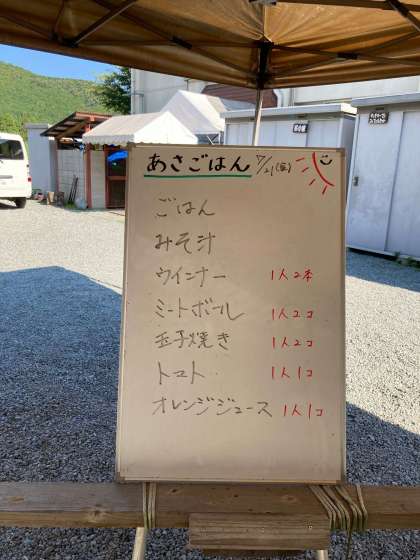 あさごはん 7/21(金)
ごはん
みそ汁
ウインナー 1人2本
ミートボール 1人2コ
玉子焼き 1人2コ
トマト 1人1コ
オレンジジュース 1人1コ